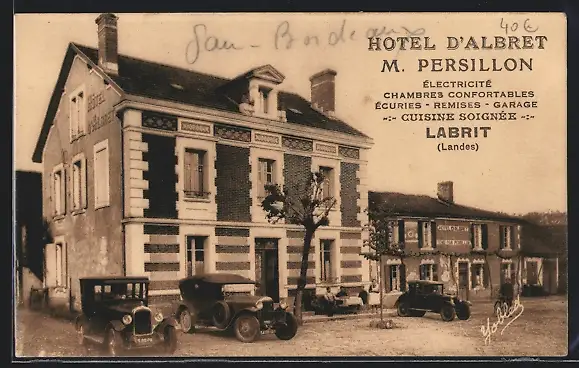 Pau - Bordeaux
40€
HOTEL D'ALBRET
M. PERSILLON
ÉLECTRICITÉ
CHAMBRES CONFORTABLES
ÉCURIES - REMISES - GARAGE
-:- CUISINE SOIGNÉE -:-
LABRIT
(Landes)
HÔTEL
D'ALBRET
HOTEL D'ALBRET